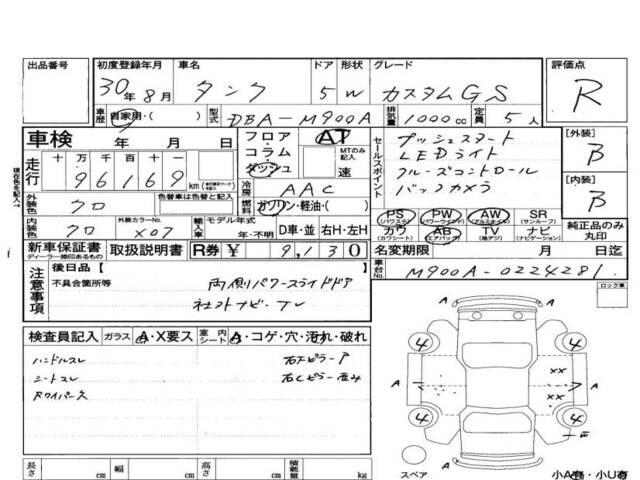 出品番号 初度登録年月 車名 ドア 形状 グレード 評価点
30年8月 タンク 5 W カスタムGS R
車歴 自家用・( ) 型式 DBA-M900A 排気量 1000cc 定員 5人
車検 年 月 日
フロア・コラム・ダッシュ AT MTのみ記入 速
セールスポイント
プッシュスタート
LEDライト
クルーズコントロール
バックカメラ
[外装] B
[内装] B
現在色を記入→
走行 十 万 千 百 十 一
96169 km
冷房 AAC
外装色 クロ 色替車は色替と記入
燃料 ガソリン・軽油・( )
PS (パワステ) PW (パワーウインド) AW (アルミホイル) SR (サンルーフ)
カワ (カワシート) AB (エアバック) TV (地デジ) ナビ (ナビゲーション)
純正品のみ丸印
内装色 クロ 外装カラーNo. X07 輸入車 モデル年式 年・不明 D車・並 右H・左H
新車保証書 ディーラー捺印あるもの 取扱説明書 R券 ¥ 9,130
名変期限 月 日迄
車台No. M900A-0224281
注意事項 後日品【 】
不具合箇所等 両側パワースライドドア
社外ナビ・TV
ロック車
検査員記入 ガラス A・X要ス 室内シート A・コゲ・穴・汚れ・破れ
ハンドルスレ 右Fピラー P
シートスレ 右Cピラー 歪み
Rワイパー欠
4 4
A A
XX
XX
4 4
A
スペア
長さ cm 幅 cm 高さ cm 積載量 kg
小A有・小U有